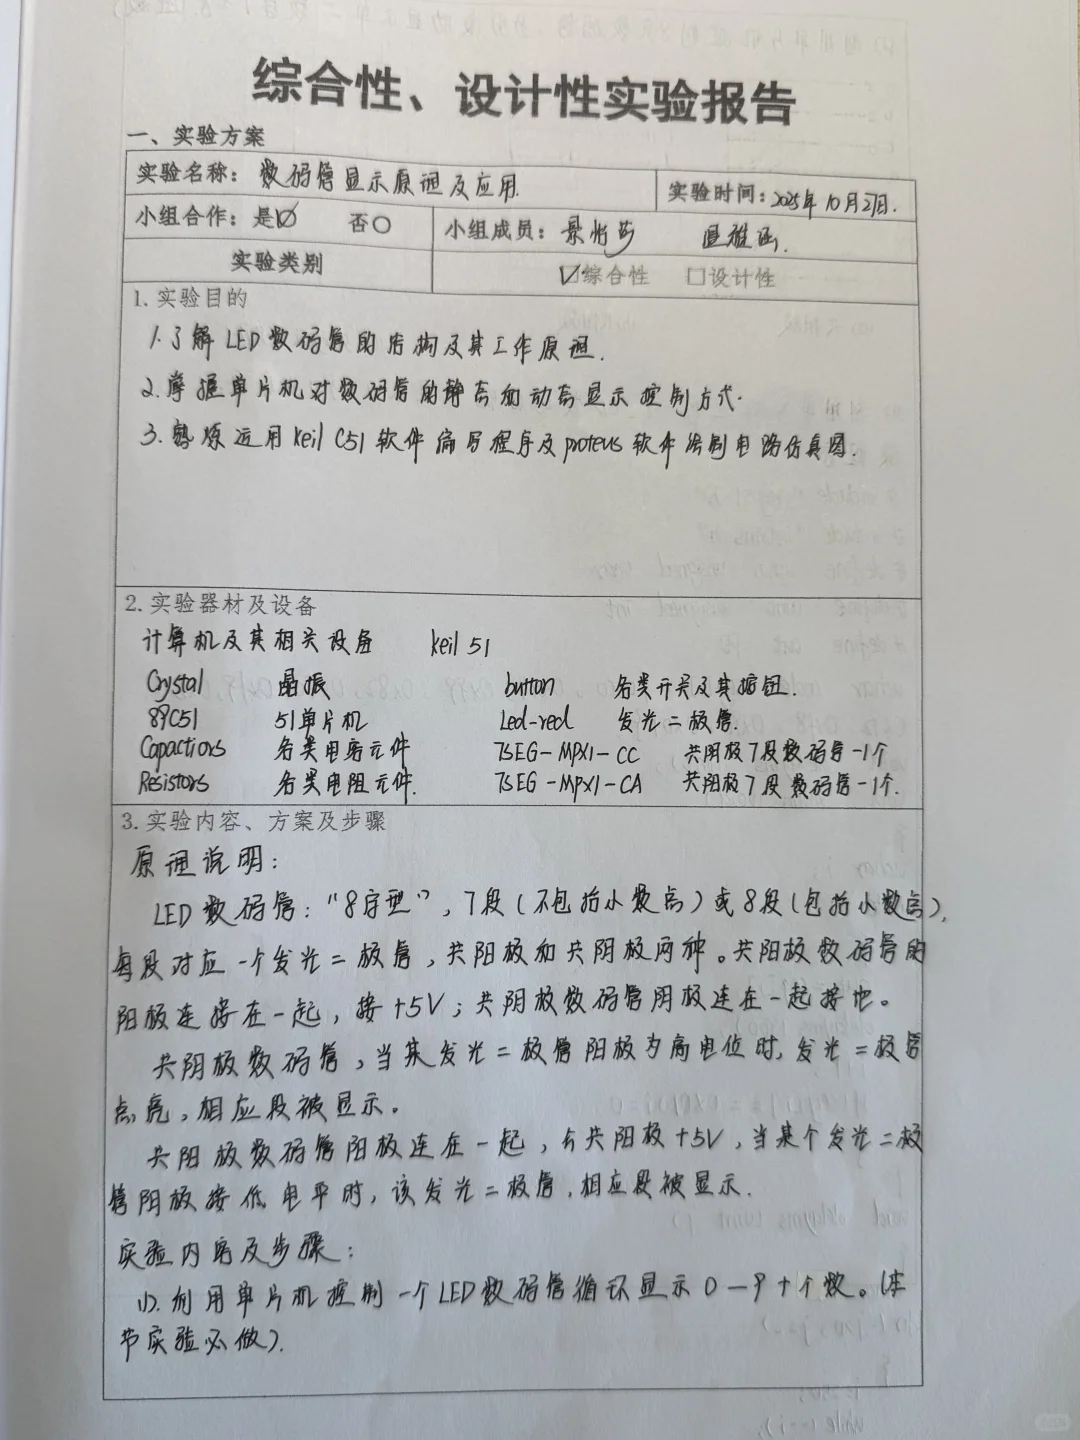 综合性、设计性实验报告
一、实验方案
实验名称：数码管显示原理及应用. 实验时间：2025年10月27日.
小组合作：是☑ 否○ 小组成员：
实验类别 ☑综合性 □设计性
1.实验目的
1.了解LED数码管的结构及其工作原理.
2.掌握单片机对数码管的静态和动态显示控制方式.
3.熟练运用keil C51软件编写程序及proteus软件绘制电路仿真图.
2.实验器材及设备
计算机及其相关设备 keil 51
Crystal 晶振 button 各类开关及其按钮.
89C51 51单片机 Led-red 发光二极管.
Capactiors 各类电容元件 7SEG-MPX1-CC 共阴极7段数码管-1个
Resistors 各类电阻元件. 7SEG-MPX1-CA 共阳极7段数码管-1个.
3.实验内容、方案及步骤
原理说明：
LED数码管："8字型"，7段（不包括小数点）或8段（包括小数点），
每段对应一个发光二极管，共阳极和共阴极两种。共阳极数码管的
阳极连接在一起，接+5V；共阴极数码管阴极连在一起接地。
共阴极数码管，当某发光二极管阳极为高电位时，发光二极管
点亮，相应段被显示。
共阳极数码管阳极连在一起，共阳极+5V，当某个发光二极
管阴极接低电平时，该发光二极管，相应段被显示.
实验内容及步骤：
(1).利用单片机控制一个LED数码管循环显示0—9十个数。（本
节实验必做）.